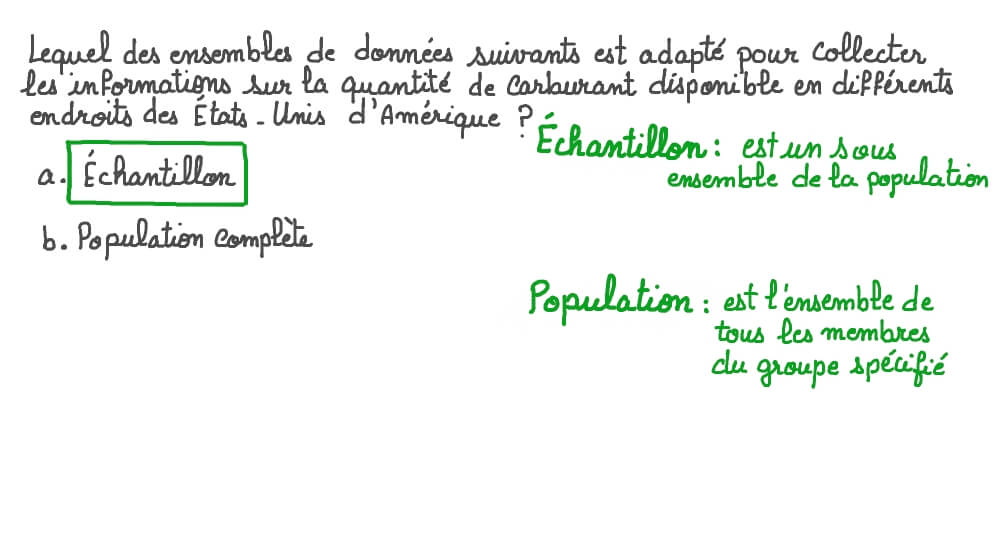 Lequel des ensembles de données suivants est adapté pour collecter
les informations sur la quantité de carburant disponible en différents
endroits des États-Unis d'Amérique ?
a. Échantillon
b. Population complète
Échantillon : est un sous
ensemble de la population
Population : est l'ensemble de
tous les membres
du groupe spécifié